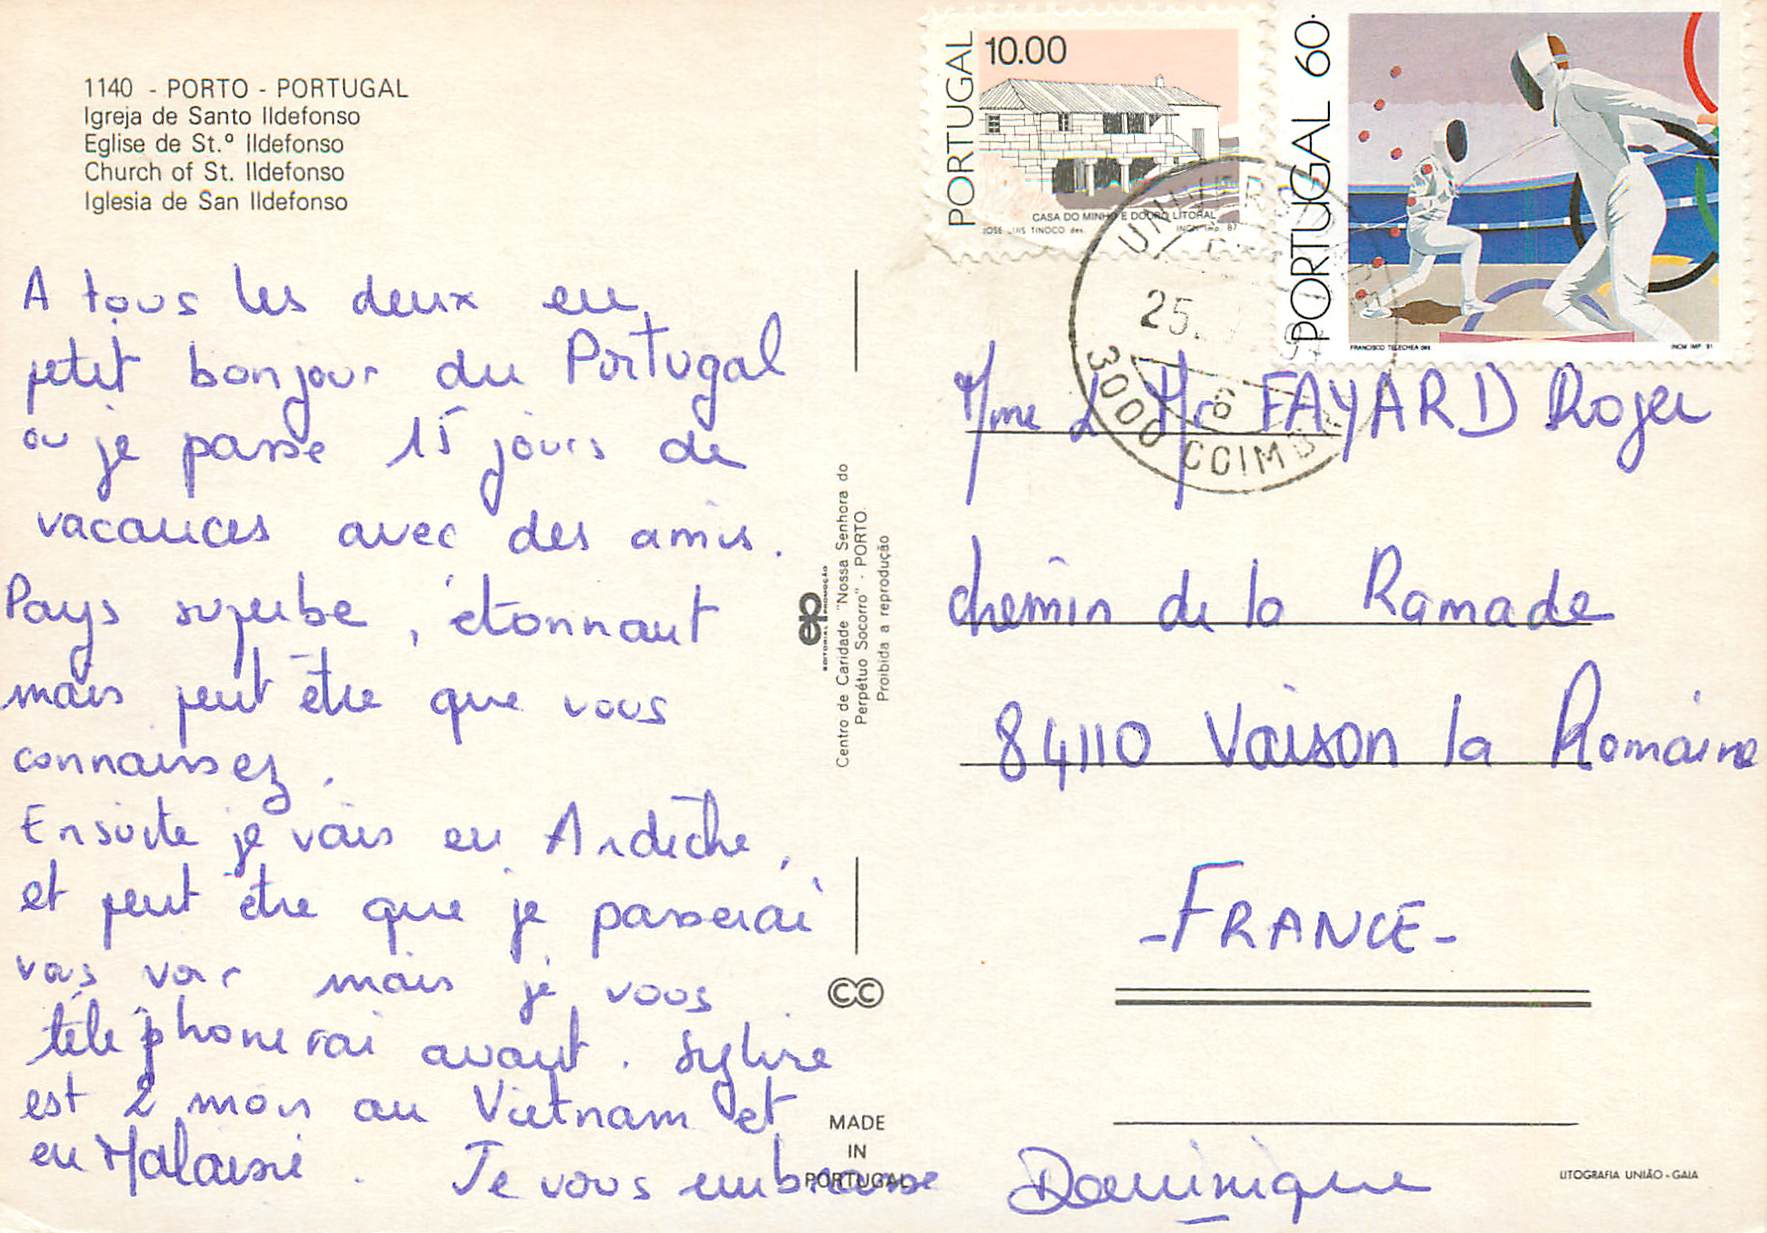 1140 - PORTO - PORTUGAL
Igreja de Santo Ildefonso
Eglise de St.º Ildefonso
Church of St. Ildefonso
Iglesia de San Ildefonso
A tous les deux en
petit bonjour du Portugal
ou je passe 15 jours de
vacances avec des amis.
Pays superbe, étonnant
mais peut être que vous
connaissez.
Ensuite je vais en Ardèche,
et peut être que je passerai
vous voir mais je vous
téléphonerai avant. Sylvie
est 2 mois au Vietnam et
en Malaisie. Je vous embrasse
Dominique
ep
EDITORIAL PROMOÇÃO
Centro de Caridade "Nossa Senhora do
Perpétuo Socorro" - PORTO.
Proibida a reprodução
CC
MADE
IN
PORTUGAL
PORTUGAL 10.00
CASA DO MINHO E DOURO LITORAL
JOSÉ LUIS TINOCO des. INCM Imp. 87
PORTUGAL 60.
FRANCISCO TELECHEA des INCM IMP 91
25.
6
3000 COIMB
Mme & Mr FAYARD Roger
chemin de la Ramade
84110 Vaison la Romaine
-FRANCE-
LITOGRAFIA UNIÃO - GAIA